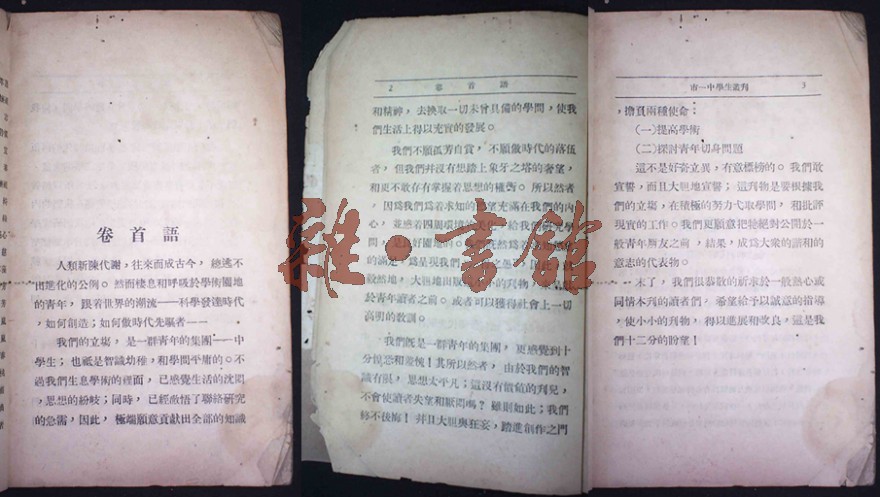 卷首語
人類新陳代謝，往來而成古今，總逃不
出進化的公例。然而棲息和呼吸於學術園地
的青年，跟着世界的潮流——科學發達時代
，如何創造；如何做時代先驅者——
我們的立塲，是一群青年的集團——中
學生；也祗是智識幼稚，和學問平庸的。不
過我們生息學術的裡面，已感覺生活的沈悶
，思想的紛歧；同時，已經啟悟了聯絡研究
的急需，因此，極端願意貢獻出全部的知識
2 卷首語
和精神，去換取一切未曾具備的學問，使我
們生活上得以充實的發展。
我們不願孤芳自賞，不願做時代的落伍
者，但我們幷沒有想踏上象牙之塔的奢望，
和更不敢存有掌握着思想的權。所以然者
，因爲我們爲着求知的望充滿在我們的內
心，並感着四周環境的
問，是
的滿足，
般然地，大胆地出版
於青年讀者之前。或者可以獲得社會上一切
高明的敎訓。
我們旣是一群青年的集團，更感覺到十
分惶恐和羞愧！其所以然者，由於我們的智
識有限，思想太平凡；這沒有價値的刋兒，
不會使讀者失望和厭悶嗎？雖則如此；我們
終不後悔！幷且大胆與狂妄，踏進創作之門
雜·書館
市一中學生叢刋 3
，擔負兩種使命：
（一）提高學術
（二）探討青年切身問題
這不是好奇立異，有意標榜的。我們敢
宣誓，而且大胆地宣誓；這刋物是要根據我
們的立塲，在積極的努力弋取學問，和批評
現實的工作。我們更願意把牠絕對公開於一
般青年朋友之前，結果，成爲大衆的諧和的
意志的代表物。
末了，我們很恭敬的祈求於一般熱心或
同情本刋的讀者們，希望給予以誠意的指導
，使小小的刋物，得以進展和改良，這是我
們十二分的盼望！